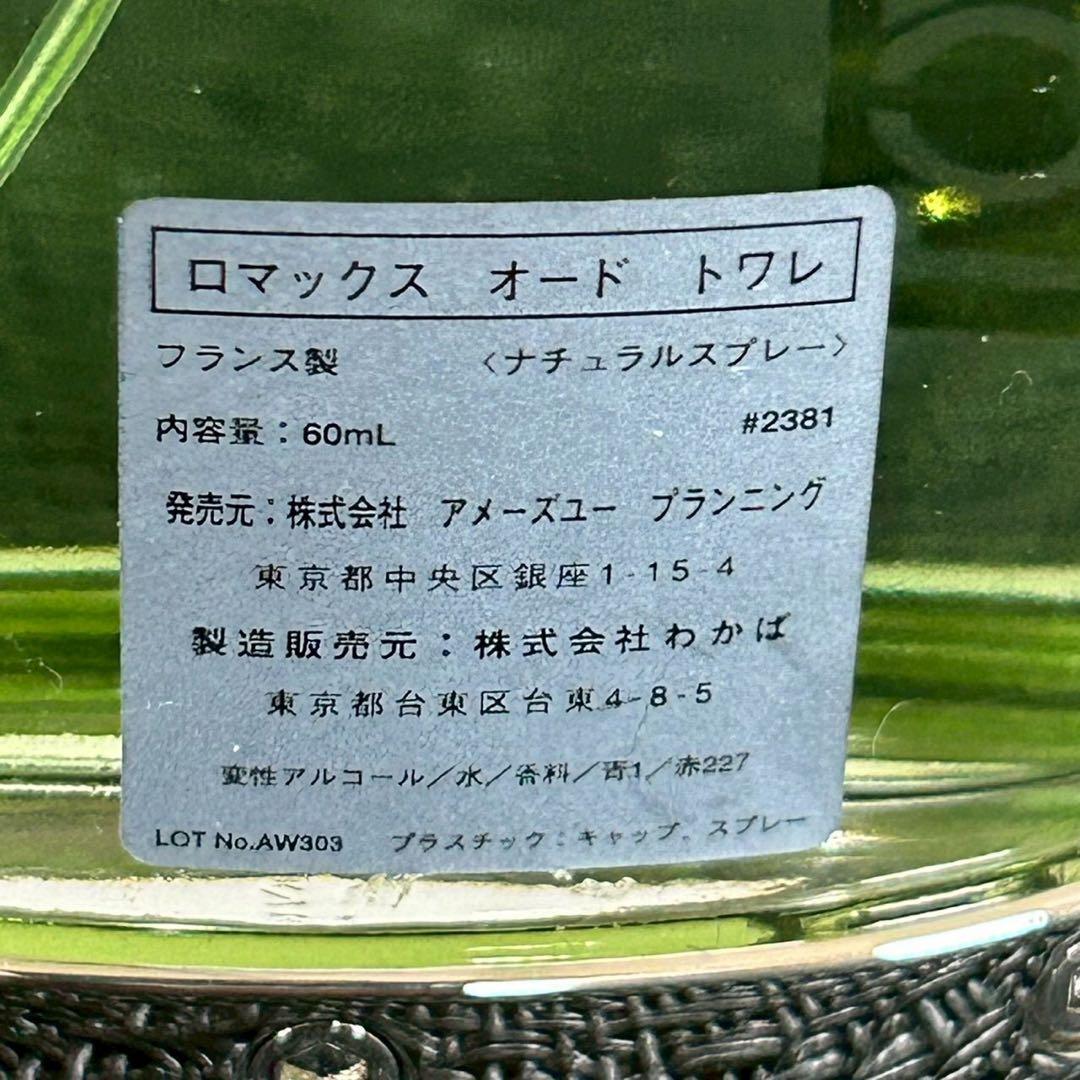 ロマックス オード トワレ
フランス製 〈ナチュラルスプレー〉
内容量：60mL #2381
発売元：株式会社 アメーズユー プランニング
東京都中央区銀座1-15-4
製造販売元：株式会社わかば
東京都台東区台東4-8-5
変性アルコール／水／香料／青1／赤227
LOT No.AW303 プラスチック：キャップ。スプレー